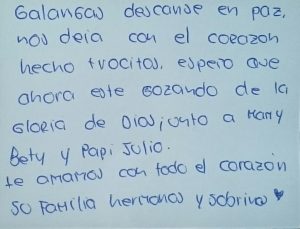 Galangas descanse en paz,
nos deja con el corazon
hecho trocitos, espero que
ahora este gozando de la
gloria de Dios junto a Mamy
Bety y Papi Julio.
te amamos con todo el corazón
su familia hermanos y sobrinos